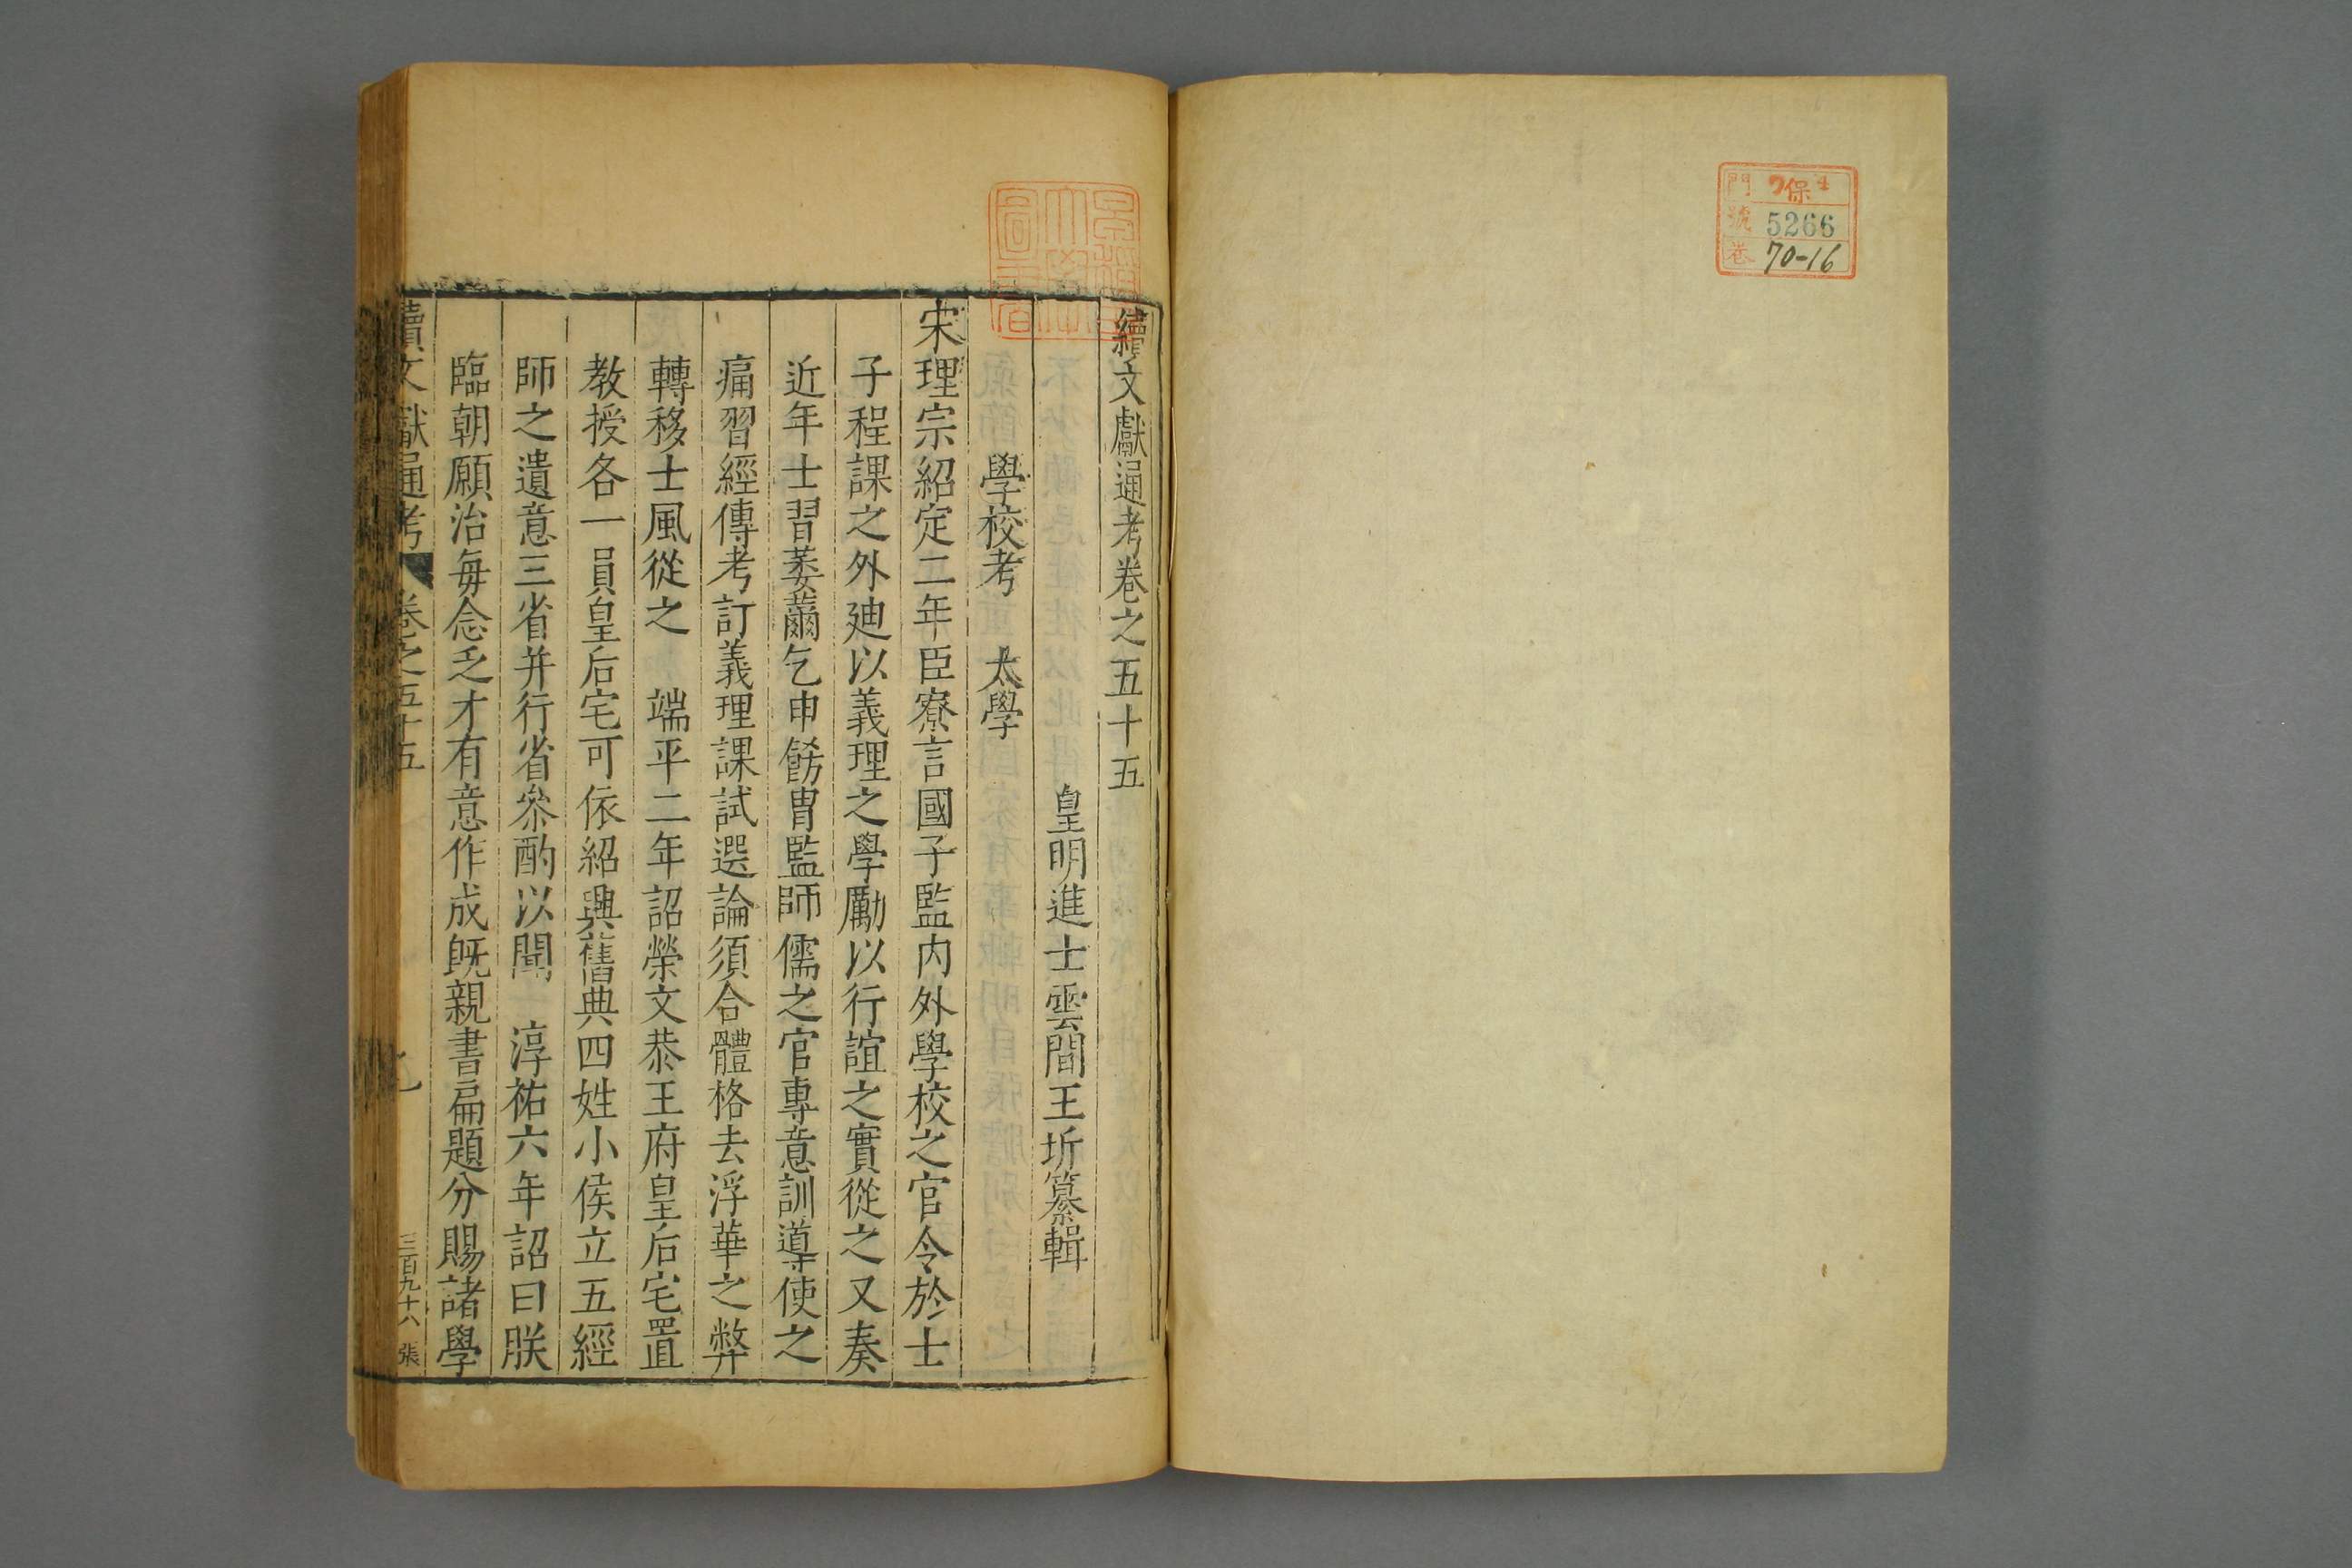 門 保
號 5266
巻 70-16
續文獻通考卷之五十五
皇明進士雲間王圻纂輯
學校考 太學
宋理宗紹定二年臣寮言國子監內外學校之官令於士
子程課之外廸以義理之學勵以行誼之實從之又奏
近年士習萎薾乞申餝胄監師儒之官專意訓導使之
痛習經傳考訂義理課試選論須合體格去浮華之弊
轉移士風從之 端平二年詔榮文恭王府皇后宅置
教授各一員皇后宅可依紹興舊典四姓小侯立五經
師之遺意三省并行省叅酌以聞 淳祐六年詔曰朕
臨朝願治每念乏才有意作成旣親書扁題分賜諸學
續文獻通考 卷之五十五 三百九十六 張